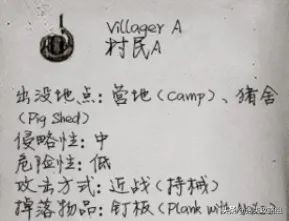 Villager A
村民A
出没地点：营地(Camp)、猪舍
(Pig Shed)
侵略性：中
危险性：低
攻击方式：近战(持械)
掉落物品：钉板(Plank with